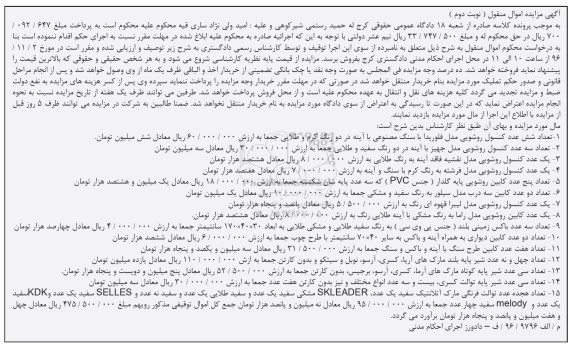 آگهی مزایده اموال منقول ( نوبت دوم )
به موجب پرونده کلاسه صادره از شعبه ۱۸ دادگاه عمومی حقوقی کرج له حمید رستمی شیرکوهی و علیه / امید ولی نژاد ساری قیه محکوم علیه محکوم است به پرداخت مبلغ ۶۴۷ / ۰۹۲ /
۷۰۰ ریال در حق محکوم له و مبلغ ۵۰۰ / ۷۴۷ / ۳۳ ریال نیم عشر دولتی با توجه به این که اجرائیه صادره به محکوم علیه ابلاغ شده در مهلت مقرر نسبت به اجرای حکم اقدام ننموده است بنا
به درخواست محکوم اموال منقول به شرح ذیل متعلق به نامبرده از سوی این اجرا توقیف و توسط کارشناس رسمی دادگستری به شرح زیر توصیف و ارزیابی شده و مقرر است در مورخ ۲ / ۱۱ /
۹۶ از ساعت ۱۰ الی ۱۱ در محل اجرای احکام مدنی دادگستری کرج بفروش برسد. مزایده از قیمت پایه نظریه کارشناسی شروع می شود و به هر شخص حقیقی و حقوقی که بالاترین قیمت را
پیشنهاد نماید فروخته خواهد شد. ده درصد وجه مزایده فی المجلس به صورت وجه نقد یا چک بانکی تضمینی از خریدار اخذ و الباقی ظرف یک ماه از وی وصول خواهد شد و پس از انجام مراحل
قانونی و صدور حکم تملیک مورد مزایده بنام خریدار منتقل خواهد شد. در صورتی که در مهلت مقرر خریدار وجه مزایده را پرداخت ننماید سپرده وی پس از کسر هزینه های مزایده به نفع دولت
ضبط و مزایده تجدید می گردد کلیه هزینه های نقل و انتقال به عهده محکوم علیه است و از محل فروش پرداخت خواهد شد. طرفین می توانند ظرف یک هفته از تاریخ مزایده نسبت به نحوه
انجام مزایده اعتراض نماید که در این صورت تا رسیدگی به اعتراض از سوی دادگاه مورد مزایده به نام خریدار منتقل نخواهد شد. ضمنا طالبین به شرکت در مزایده می توانند ظرف ۵ روز قبل
از مزایده با اطلاع این اجرا از مال مورد مزایده بازدید نمایند.
مال مورد مزایده و بهای آن طبق نظر کارشناس بدین شرح است:
۱- تعداد شش عدد کنسول روشویی مدل فلوریدا با سنگ مصنوعی با آینه در دو رنگ کرم و طلایی جمعا به ارزش ۰۰۰ / ۰۰۰ / ۶۰ ریال معادل شش میلیون تومان.
۲- تعداد سه عدد کنسول روشویی مدل جهیز با آینه در دو رنگ سفید و طلایی جمعا به ارزش ۰۰۰ / ۰۰۰ / ۳۰ ریال معادل سه میلیون تومان.
۳- یک عدد کنسول روشویی مدل نقشیه فاقد آینه به رنگ طلایی به ارزش ۰۰۰ / ۰۰۰ / ۸ ریال معادل هشتصد هزار تومان.
۴- یک عدد کنسول روشویی مدل فرشته به رنگ کرم با سنگ و آینه به ارزش ۰۰۰ / ۰۰۰ / ۷ ریال معادل هفتصد هزار تومان.
۵- تعداد پنج عدد کابین روشویی پایه گلدار ( جنس PVC ) که سه عدد پایه شان شکسته جمعا به ارزش ۰۰۰ / ۰۰۰ / ۱۸ ریال معادل یک میلیون و هشتصد هزار تومان.
۶- تعداد دو عدد کابین سه درب مدل سیلور به رنگ سفید و مشکی جمعا به ارزش ۰۰۰ / ۰۰۰ / ۱۰ ریال معادل یک میلیون تومان
۷- یک عدد کنسول روشویی مدل لیبرا قهوه ای رنگ به ارزش ۰۰۰ / ۵۰۰ / ۵ ریال معادل پانصد و پنجاه هزار تومان.
۸- یک عدد کابین روشویی مدل راما به رنگ مشکی با آینه طلایی رنگ به ارزش ۰۰۰ / ۰۰۰ / ۸ ریال معادل هشتصد هزار تومان.
۹- تعداد سه عدد باکس زمینی بلند ( جنس پی وی سی ) به رنگ سفید طلایی و مشکی طلایی به ابعاد ۳۰×۴۰×۱۷۰ سانتیمتر جمعا به ارزش ۰۰۰ / ۰۰۰ / ۴ ریال معادل چهارصد هزار تومان
۱۰- تعداد دو عدد کابین دیواری به همراه آینه و باکس به سایز ۴۰×۷۰ سانتیمتر با طرح چوب جمعا به ارزش ۰۰۰ / ۰۰۰ / ۶ ریال معادل ششصد هزار تومان
۱۱- تعداد هفت عدد کابین طرح سنگ با آینه و باکس و سنگ جمعا به ارزش ۰۰۰ / ۵۰۰ / ۳۱ ریال معادل سه میلیون و یکصد و پنجاه هزار تومان.
۱۲- تعداد چهل و نه عدد شیر پایه بلند مارک های آریا، کسری، آرسو، نوبل و سیتکو و بدون کارتن جمعا به ارزش ۰۰۰ / ۰۰۰ / ۱۱۰ ریال معادل یازده میلیون تومان.
۱۳- تعداد سی عدد شیر پایه کوتاه مارک های آرما، کسری، آرسو، برجیس، بدون کارتن جمعا به ارزش ۰۰۰ / ۵۰۰ / ۵۲ ریال معادل پنج میلیون و دویست و پنجاه هزار تومان.
۱۴- تعداد سی عدد شیر پایه توالت کسری، بیست و سه عدد انواع مختلف و نیز بدون کارتن هفت عدد جمعا به ارزش ۰۰۰ / ۰۰۰ / ۳۰ ریال معادل سه میلیون تومان
۱۵- تعداد هجده عدد توالت فرنگی مارک آتلانتیک سفید یک عدد، SKLEADER مشکی سفید یک عدد و سفید طلایی یک عدد و سفید نه عدد و SELLES سفید یک عدد و KDK سفید
یک عدد و melody سفید چهار عدد جمعا به ارزش ۰۰۰ / ۰۰۰ / ۹۵ ریال معادل نه میلیون و پانصد هزار تومان جمع کل اموال توقیفی مذکور رویهم مبلغ ۰۰۰ / ۵۰۰ / ۴۷۵ ریال معادل چهل
و هفت میلیون و پانصد و پنجاه هزار تومان برآورد می گردد.
م / الف ۹۷۹۶ / ۹۶ / ف – دادورز اجرای احکام مدنی